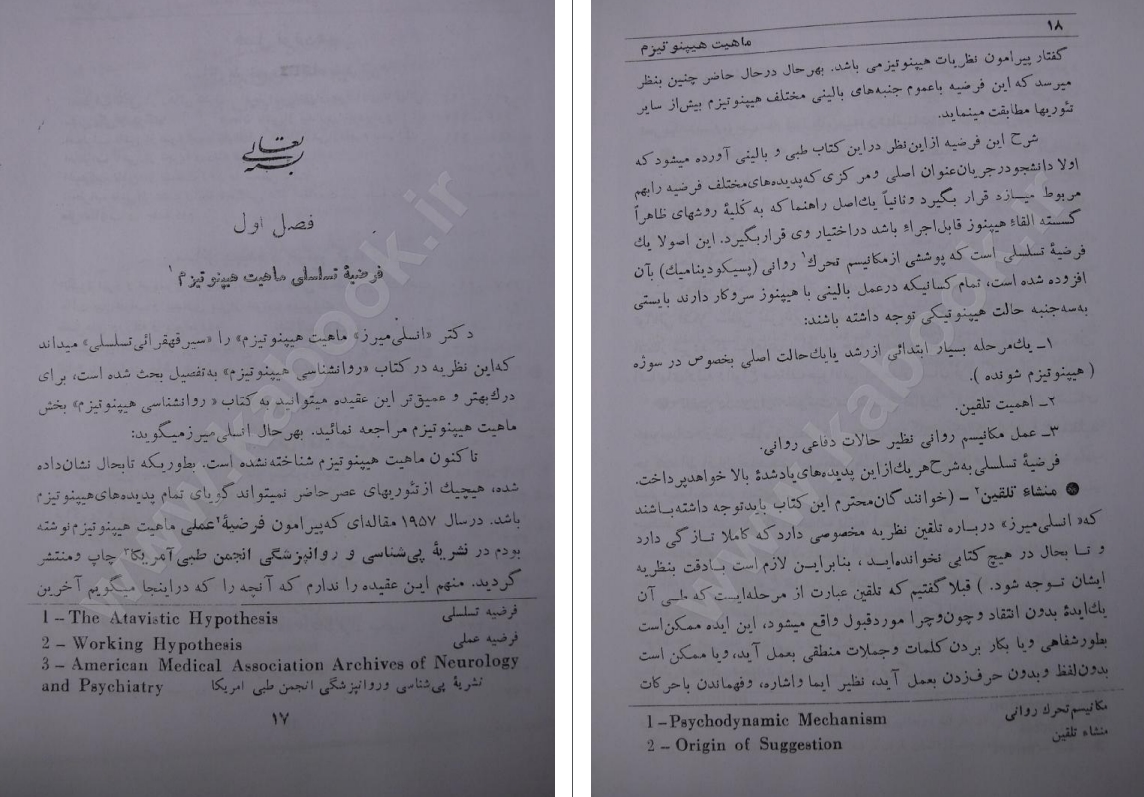 بسمه تعالی
فصل اول
فرضیهٔ تسلسلی ماهیت هیپنوتیزم۱
دکتر «انسلی میرز» ماهیت هیپنوتیزم» را «سیر قهقرائی تسلسلی» میداند
که این نظریه در کتاب «روانشناسی هیپنوتیزم» به تفصیل بحث شده است، برای
درك بهتر و عمیق‌تر این عقیده میتوانید به کتاب « روانشناسی هیپنوتیزم» بخش
ماهیت هیپنوتیزم مراجعه نمائید. بهر حال انسلی میرز میگوید:
تا کنون ماهیت هیپنوتیزم شناخته نشده است. بطوریکه تابحال نشان داده
شده، هیچیك از تئوریهای عصر حاضر نمیتواند گویای تمام پدیده‌های هیپنوتیزم
باشد. در سال ۱۹۵۷ مقاله‌ای که پیرامون فرضیهٔ۲ عملی ماهیت هیپنوتیزم نوشته
بودم در نشریهٔ پی‌شناسی و روانپزشگی انجمن طبی آمریکا۳ چاپ ومنتشر
گردید. منهم این عقیده را ندارم که آنچه را که دراینجا میگویم آخرین
1 – The Atavistic Hypothesis فرضیه تسلسلی
2 – Working Hypothesis فرضیه عملی
3 – American Medical Association Archives of Neurology
and Psychiatry نشریهٔ پی‌شناسی وروانپزشگی انجمن طبی امریکا
۱۷
۱۸
ماهیت هیپنوتیزم
گفتار پیرامون نظریات هیپنوتیزمی باشد. بهرحال درحال حاضر چنین بنظر
میرسد که این فرضیه باعموم جنبه‌های بالینی مختلف هیپنوتیزم بیش‌از سایر
تئوریها مطابقت مینماید.
شرح این فرضیه ازاین‌نظر دراین کتاب طبی و بالینی آورده میشود که
اولا دانشجودرجریان‌عنوان اصلی ومرکزی که‌پدیده‌های‌مختلف فرضیه رابهم
مربوط میسازد قرار بگیرد وثانیاً یك‌اصل راهنما که به کُلیهٔ روشهای ظاهراً
گسسته القاء هیپنوز قابل‌اجراء باشد دراختیار وی قراربگیرد. این اصولا یك
فرضیهٔ تسلسلی است که پوششی ازمکانیسم تحرك۱ روانی (پسیکودینامیك) بآن
افزوده شده است، تمام کسانیکه درعمل بالینی با هیپنوز سروکار دارند بایستی
به‌سه‌جنبه حالت هیپنوتیکی توجه داشته باشند:
۱ــ یك‌مرحله بسیار ابتدائی ازرشد یایك‌حالت اصلی بخصوص در سوژه
( هیپنوتیزم شونده ).
۲ــ اهمیت تلقین.
۳ــ عمل مکانیسم روانی نظیر حالات دفاعی روانی.
فرضیهٔ تسلسلی به‌شرح هریك‌ازاین پدیده‌های‌یادشدهٔ بالا خواهدپرداخت.
● منشاء تلقین۲ ــ (خوانندگان‌محترم این کتاب بایدتوجه داشته‌باشند
که« انسلی‌میرز» درباره تلقین نظریه مخصوصی دارد که کاملا تازگی دارد
و تا بحال در هیچ کتابی نخوانده‌ایـد ، بنابرایـن لازم است بـادقت بنظریه
ایشان تـوجه شود. ) قبلا گفتیم که تلقین عبارت از مرحله‌ایست که طی آن
یك‌ایدهٔ بدون انتقاد وچون‌وچرا موردقبول واقع میشود، این ایده ممکن‌است
بطورشفاهی ویا بکار بردن کلمات وجملات منطقی بعمل آید، ویا ممکن است
بدون‌لفظ وبدون حرف‌زدن بعمل آید، نظیر ایما واشاره، وفهماندن باحرکات
1 –Psychodynamic Mechanism مکانیسم تحرك روانی
2 – Origin of Suggestion منشاء تلقین
www.kabook.ir
www.kabook.ir